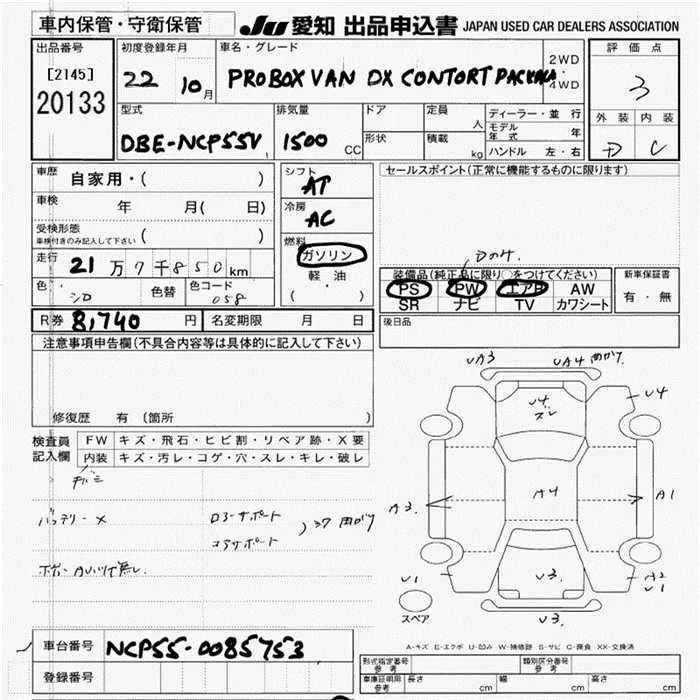 車内保管・守衛保管 JU 愛知 出品申込書 JAPAN USED CAR DEALERS ASSOCIATION
出品番号 初度登録年月 車名・グレード 評価点
[2145] 22 10月 PROBOX VAN DX CONTORT PACKAGE 2WD・4WD 3
20133
型式 排気量 ドア 定員 人 ディーラー・並行 外装 内装
DBE-NCP55V 1500 CC 形状 積載 kg モデル年式 年 D C
ハンドル 左・右
車歴 自家用・( ) シフト AT セールスポイント(正常に機能するものに限ります)
車検 年 月( 日) 冷房 AC
受検形態 ( )
車検付きのみ記入して下さい
燃料 ガソリン
走行 21万7千850km 軽油
Dのみ
装備品(純正品に限り○をつけてください) 新車保証書
色 シロ 色替 色コード 058 ( ・ ) PS PW エアB AW 有・無
SR ナビ TV カワシート
R券 8,740円 名変期限 月 日 後日品
注意事項申告欄(不具合内容等は具体的に記入して下さい)
修復歴 有 (箇所 )
検査員記入欄 FW キズ・飛石・ヒビ割・リペア跡・X要
内装 キズ・汚レ・コゲ・穴・スレ・キレ・破レ
バッテリー×
ロアーサポート
コアサポート
UA3 UA4
U4 U4
ズレ
A3 A4 A1
U1 U3. A2
U1
スペア U3.
A-キズ E-エクボ U-凹ミ W-補修跡 S-サビ C-腐食 XX-交換済
車台番号 NCP55-0085753
登録番号
形式指定番号 参考 類別区分番号 参考
車庫証明用 参考 長さ cm 幅 cm 高さ cm